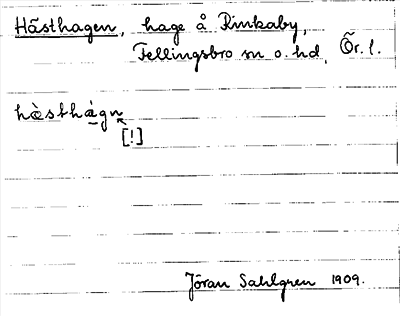 Hästhagen, hage å Rinkaby,
Fellingsbro sn o. hd, Ör. l.
hæ̀sthàgn
[!]
Jöran Sahlgren 1909.